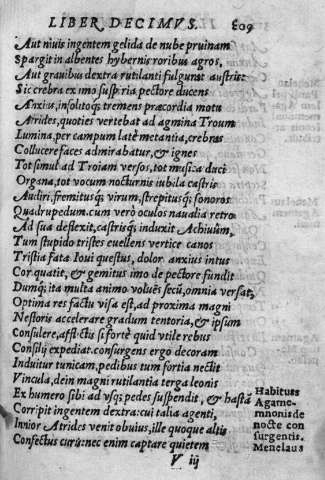 LIBER DECIMVS. 609
Aut niuis ingentem gelida de nube pruinam
Spargit in albentes hybernis roribus agros,
Aut grauibus dextra rutilanti fulgurat austris:
Sic crebra ex imo suspiria pectore ducens
Anxius, insolitoq; tremens præcordia motu
Atrides, quoties vertebat ad agmina Troum
Lumina, per campum latè metantia, crebras
Collucere faces admirabatur, & ignes
Tot simul ad Troiam versos, tot musica duci
Organa, tot vocum nocturnis iubila castris
Audiri, fremitusq; virum, strepitusq; sonoros
Quadrupedum. cum verò oculos naualia retro
Ad sua deflexit, castrisq; induxit Achiuûm,
Tum stupido tristes euellens vertice canos
Tristia fata Ioui questus, dolor anxius intus
Cor quatit, & gemitus imo de pectore fundit
Dumq; ita multa animo voluēs secū, omnia versat,
Optima res factu visa est, ad proxima magni
Nestoris accelerare gradum tentoria, & ipsum
Consulere, afflictis si fortè quid vtile rebus
Consilij expediat. consurgens ergo decoram
Induitur tunicam, pedibus tum fortia nectit
Vincula, dein magni rutilantia terga leonis
Ex humero sibi ad vsq; pedes suspendit, & hastā
Corripit ingentem dextra: cui talia agenti,
Iunior Atrides venit obuius, ille quoque altis
Confectus curis: nec enim captare quietem
Habitus
Agame-
mnonis de
nocte con
surgentis.
Menelaus
V iij